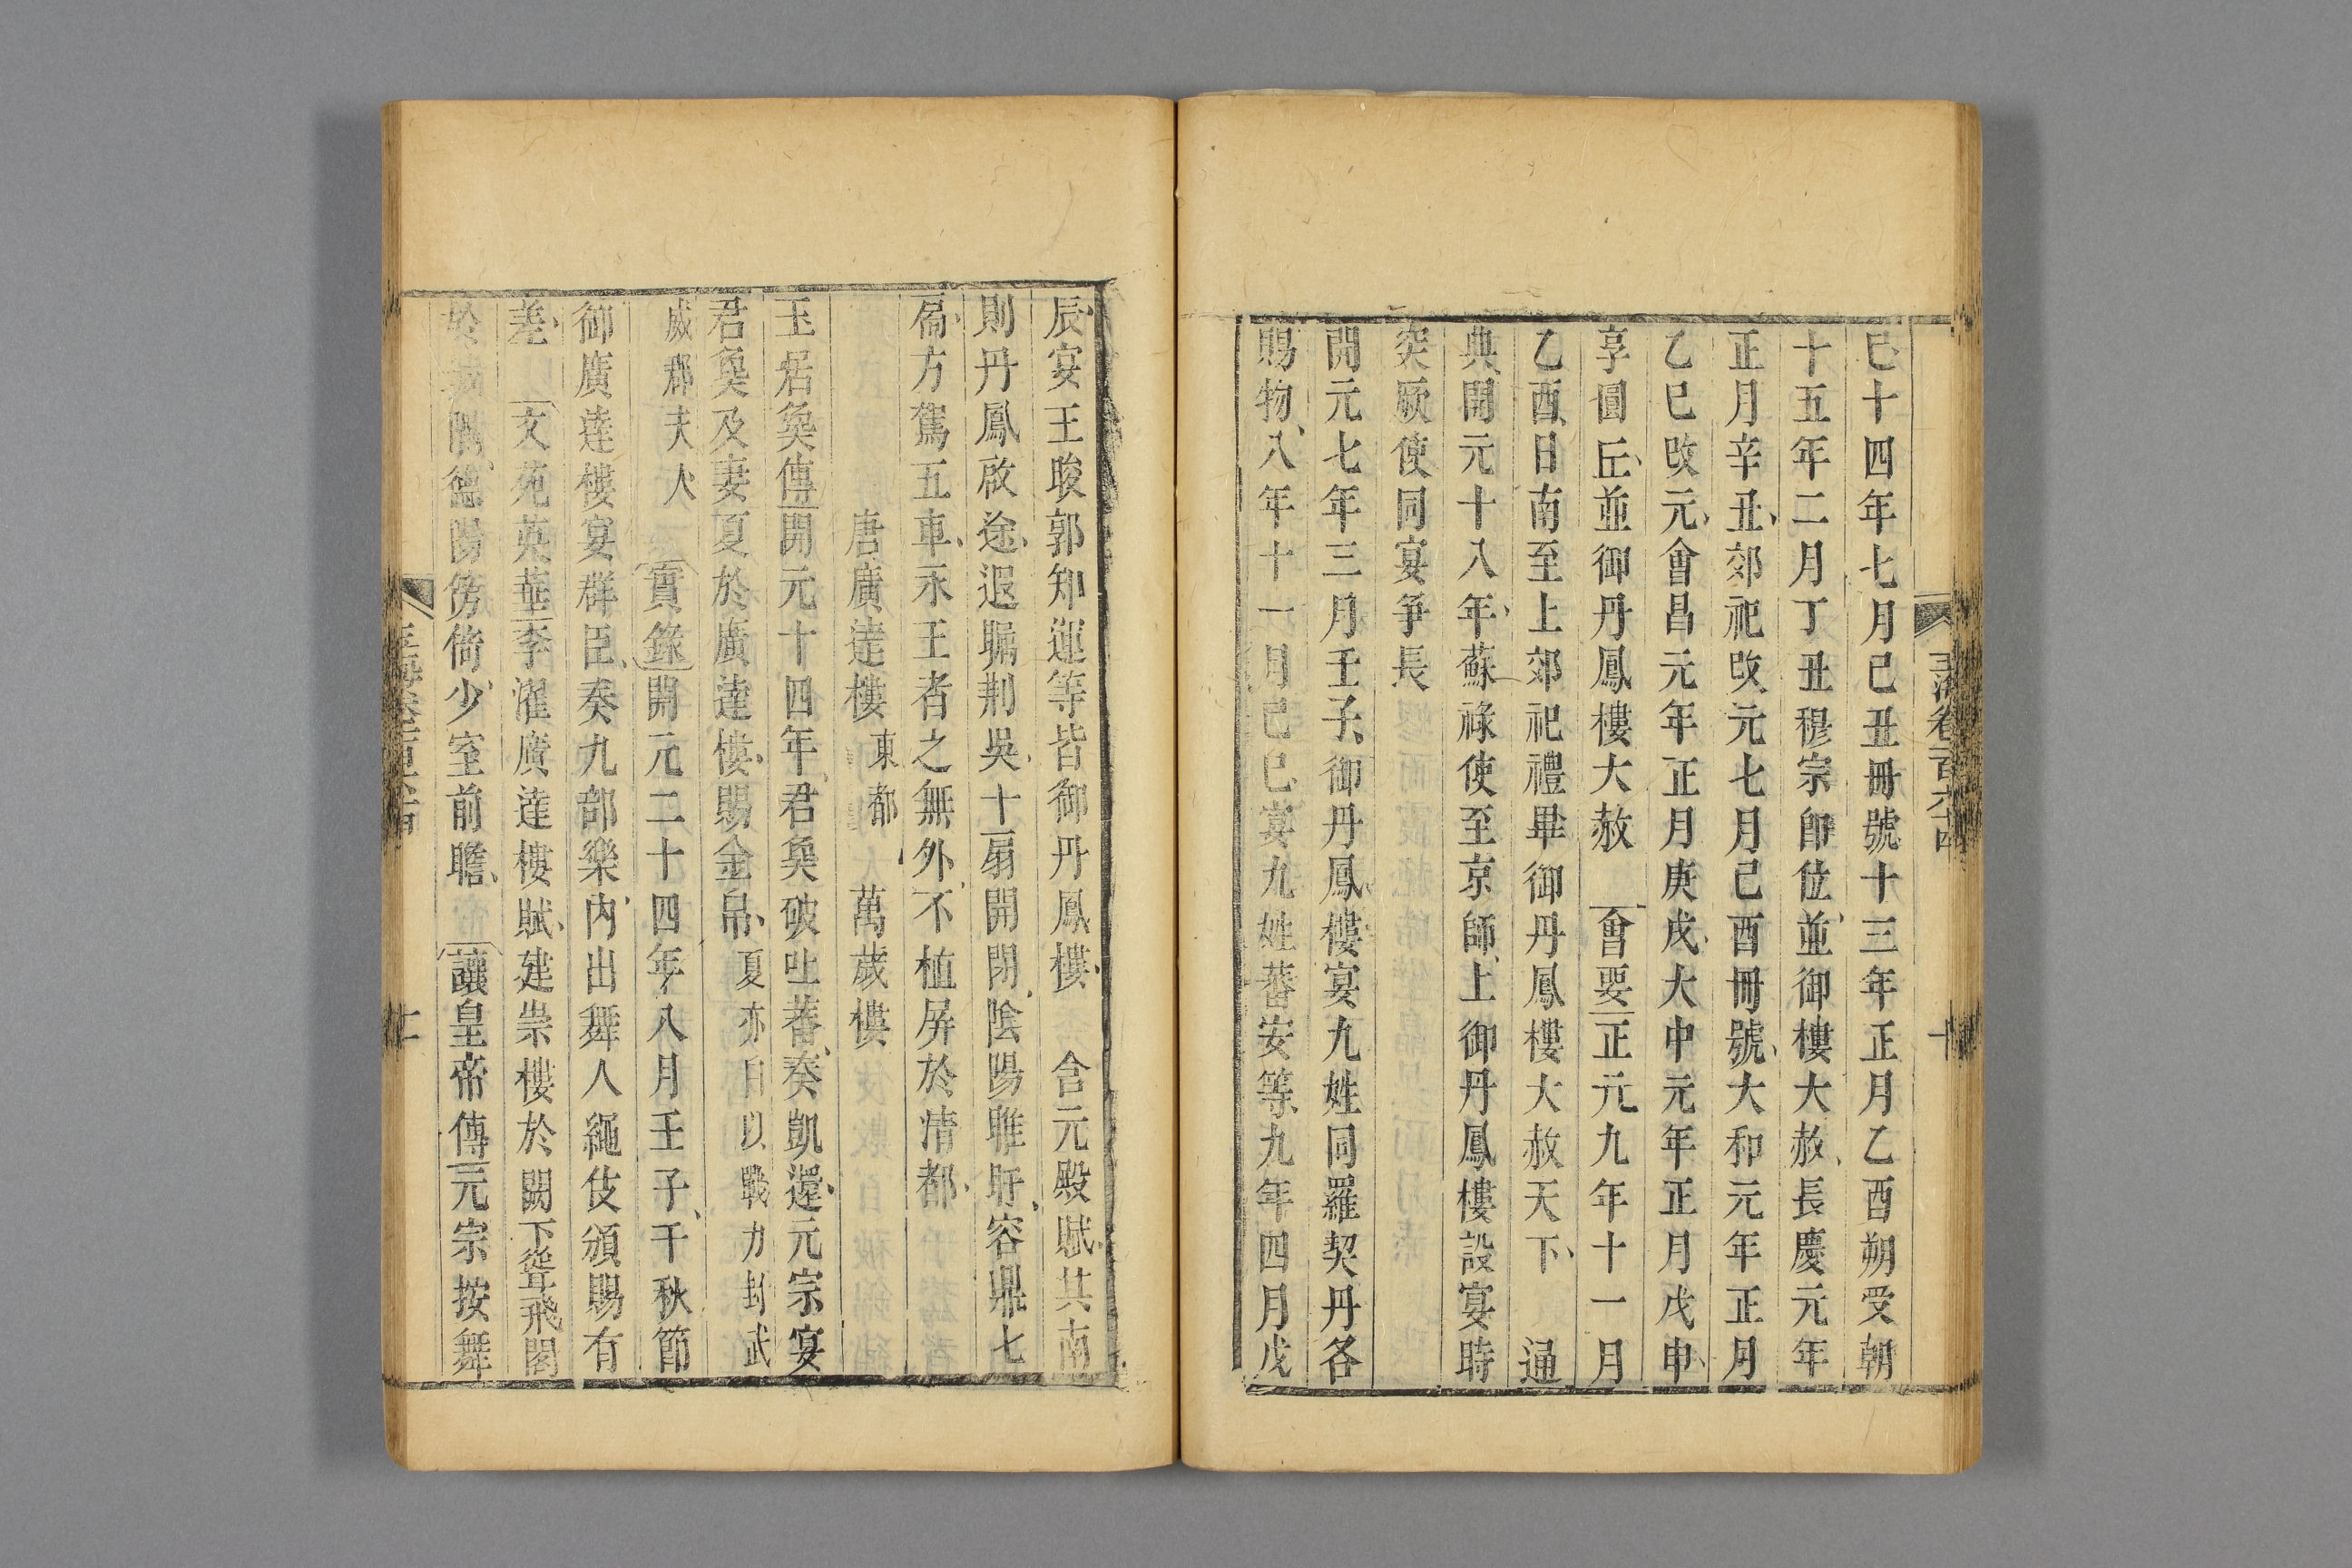 巳十四年七月己丑冊號十三年正月乙酉朔受朝
十五年二月丁丑穆宗卽位並御樓大赦長慶元年
正月辛丑郊祀改元七月己酉冊號大和元年正月
乙巳改元會昌元年正月庚戌大中元年正月戊申
享圓丘並御丹鳳樓大赦 會要正元九年十一月
乙酉日南至上郊祀禮畢御丹鳳樓大赦天下 通
典開元十八年蘇祿使至京師上御丹鳳樓設宴時
突厥使同宴爭長
開元七年三月壬子御丹鳳樓宴九姓同羅契丹各
賜物八年十一月己巳宴九姓蕃安等九年四月戊
玉海卷一百六十四 十
辰宴王晙郭知運等皆御丹鳳樓 含元殿賦其南
則丹鳳啟途遐矚荆吳十扇開閉陰陽睢盱容鼎七
扃方駕五車永王者之無外不植屏於清都
唐廣達樓 東都 萬歲樓
王君㚟傳開元十四年君㚟破吐蕃奏凱還元宗宴
君㚟及妻夏於廣達樓賜金帛夏亦自以戰力封武
威郡夫人 實錄開元二十四年八月壬子千秋節
御廣達樓宴群臣奏九部樂內出舞人繩伎頒賜有
差 文苑英華李濯廣達樓賦建崇樓於闕下聳飛閣
於 隅德陽傍倚少室前瞻 讓皇帝傳元宗按舞